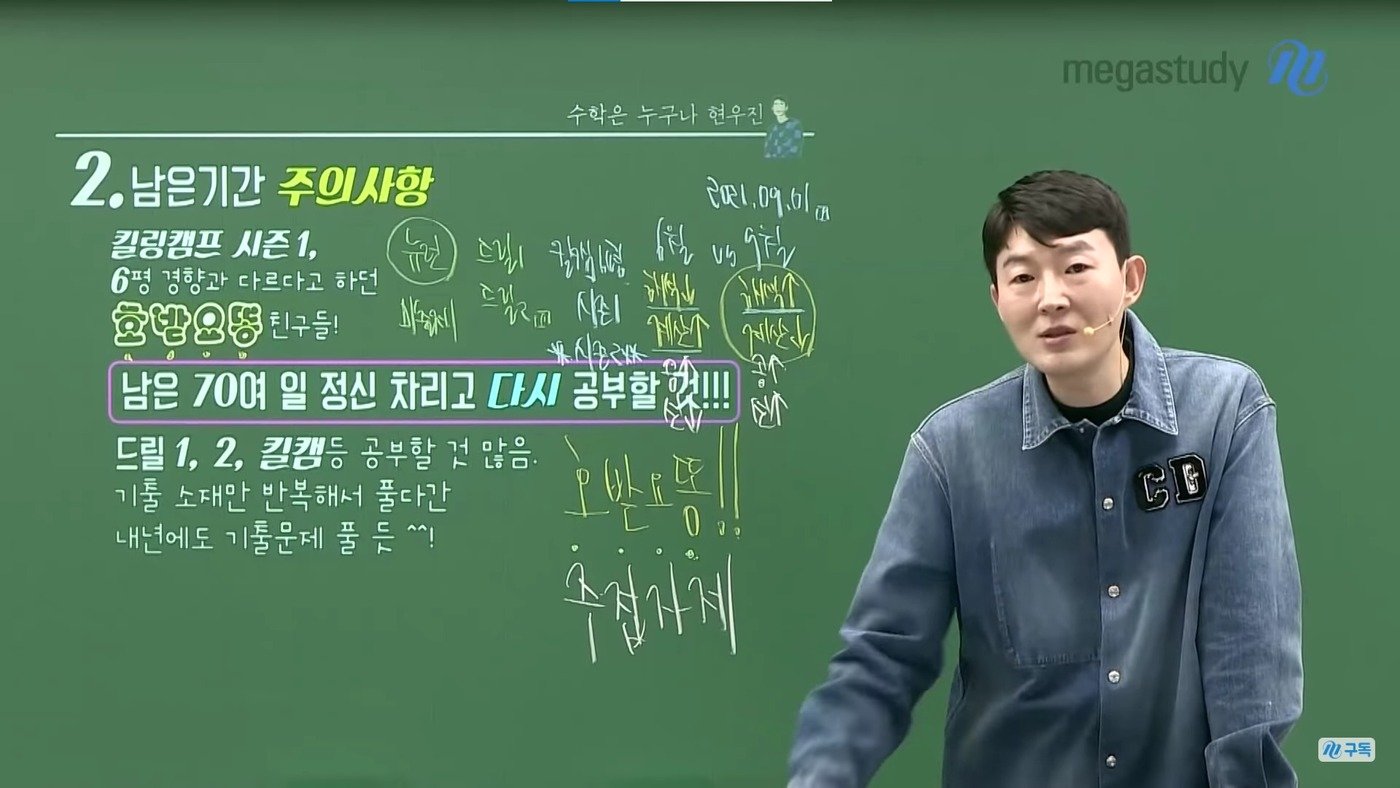 megastudy
수학은 누구나 현우진
2. 남은기간 주의사항
2021.09.01
킬링캠프 시즌1,
6평 경향과 다르다고 하던
호발요뚱 친구들!
뉴런 드릴1 6월 vs 9월
드릴2 시즌1 해석↓ 해석↑
계산↑ 계산↓
*시즌2*
공↑ 공↑
남은 70여 일 정신 차리고 다시 공부할 것!!!
드릴 1, 2, 킬캠등 공부할 것 많음.
기출 소재만 반복해서 풀다간
내년에도 기출문제 풀 듯 ^^!
호발요뚱!!
주접자제
구독